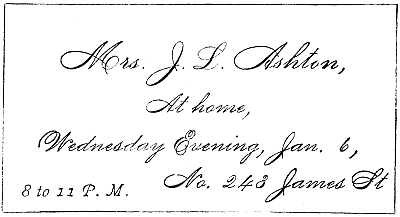 Mrs. J. L. Ashton,
At home,
Wednesday Evening, Jan. 6,
8 to 11 P. M. No. 248 James St